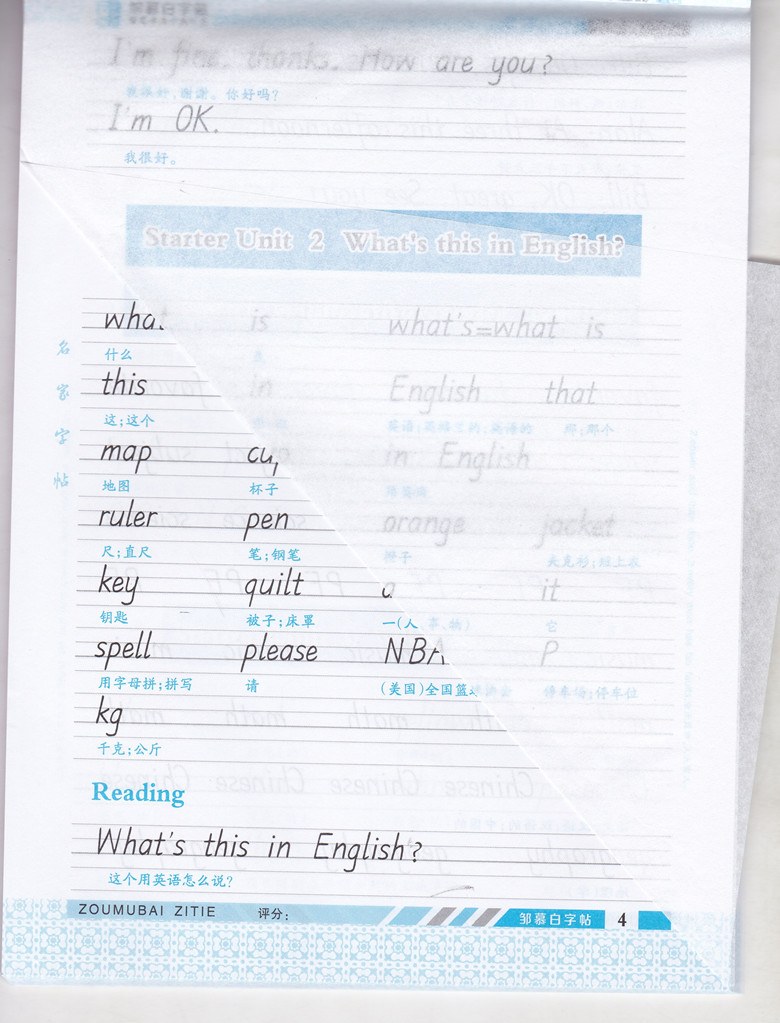 邹慕白字帖
I'm fine, thanks. How are you?
我很好,谢谢。你好吗?
I'm OK.
我很好。
Starter Unit 2 What's this in English?
is what's=what is
什么
this in English that
这;这个 英语;英格兰的;英语的 那;那个
map in English
地图 杯子
ruler pen orange jacket
尺;直尺 笔;钢笔 橙子 夹克衫;短上衣
key quilt a it
钥匙 被子;床罩 一(人、事、物) 它
spell please NBA P
用字母拼;拼写 请 (美国)全国篮 停车场;停车位
kg
千克;公斤
名家字帖
Reading
What's this in English?
这个用英语怎么说?
ZOUMUBAI ZITIE 评分: 邹慕白字帖 4